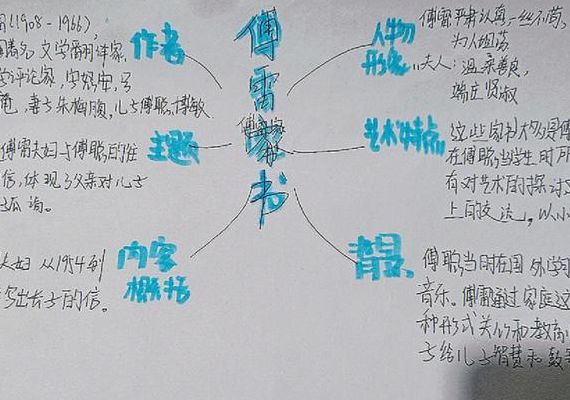 傅雷家书
作者
(1908-1966),
著名文学翻译家,
学评论家,字怒安,号
妻子朱梅馥,儿子傅聪、傅敏
主题
傅雷夫妇与傅聪的
信,体现了父亲对儿子
内容
概括
夫妇从1954到
写出长子的信。
人物
形象
傅雷严肃认真一丝不苟,
为人坦荡
夫人:温柔善良,
端庄贤淑
艺术特点
这些家书大多是傅
在傅聪当学生时所
有对艺术的探讨
上的交流。以小
背景
傅聪当时在国外学习
音乐。傅雷通过家庭这
种形式关心和教育儿
子给儿子智慧和鼓